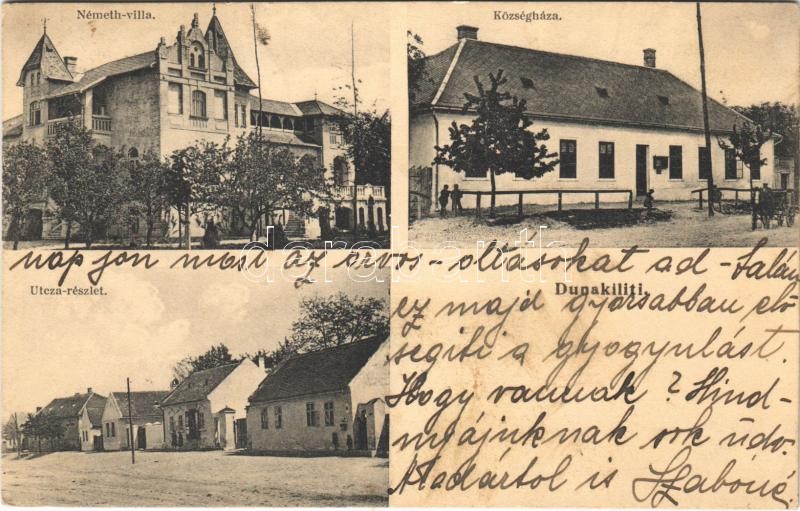 Németh-villa.
Községháza.
nap jön most az orvos - oltásokat ad - talán
Utcza-részlet.
Dunakiliti.
ez majd gyorsabban elő
segiti a gyogyulást.
Hogy vannak? Mind-
nyájuknak sok üdv.
Madártol is Szabóné.
darabanth